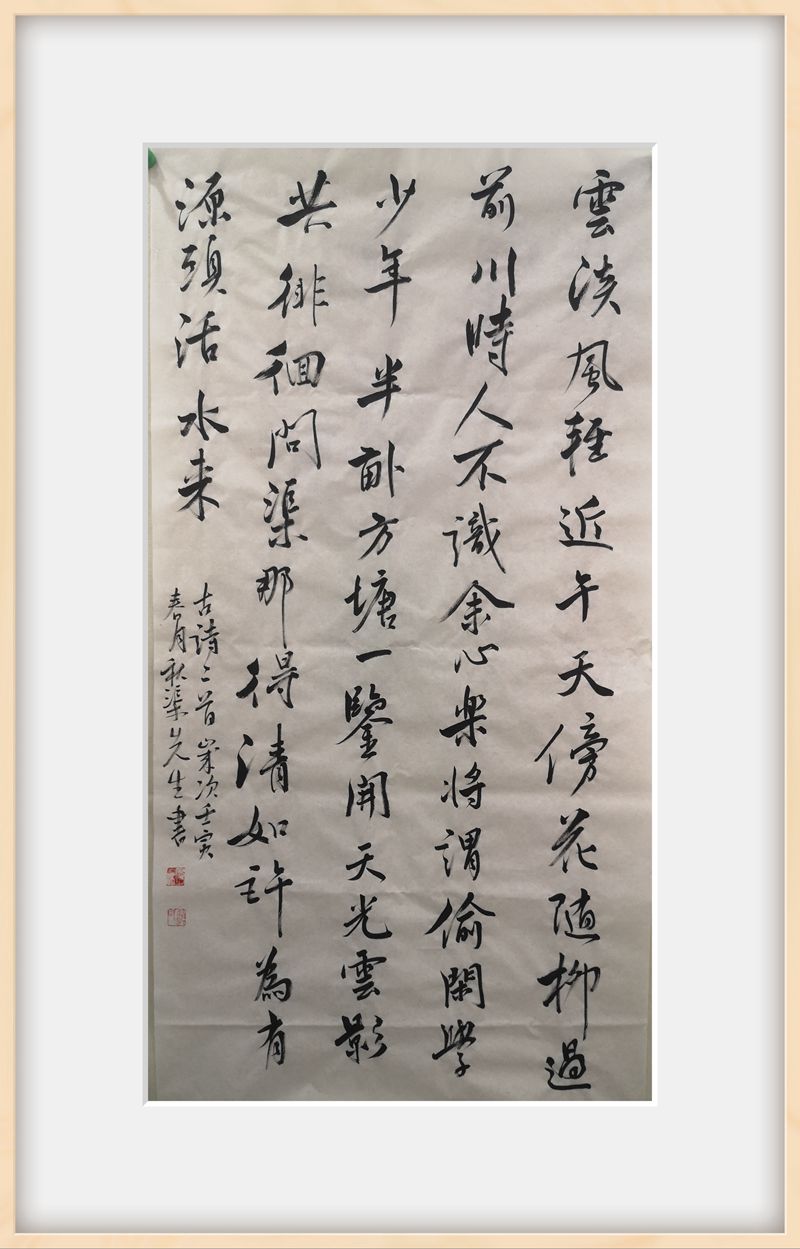 雲淡風輕近午天傍花随柳過
前川時人不識余心樂将謂偷閑學
少年半畝方塘一鑒開天光雲影
共徘徊問渠那得清如許為有
源頭活水来
古詩二首歲次壬寅
春月秋渠先生書